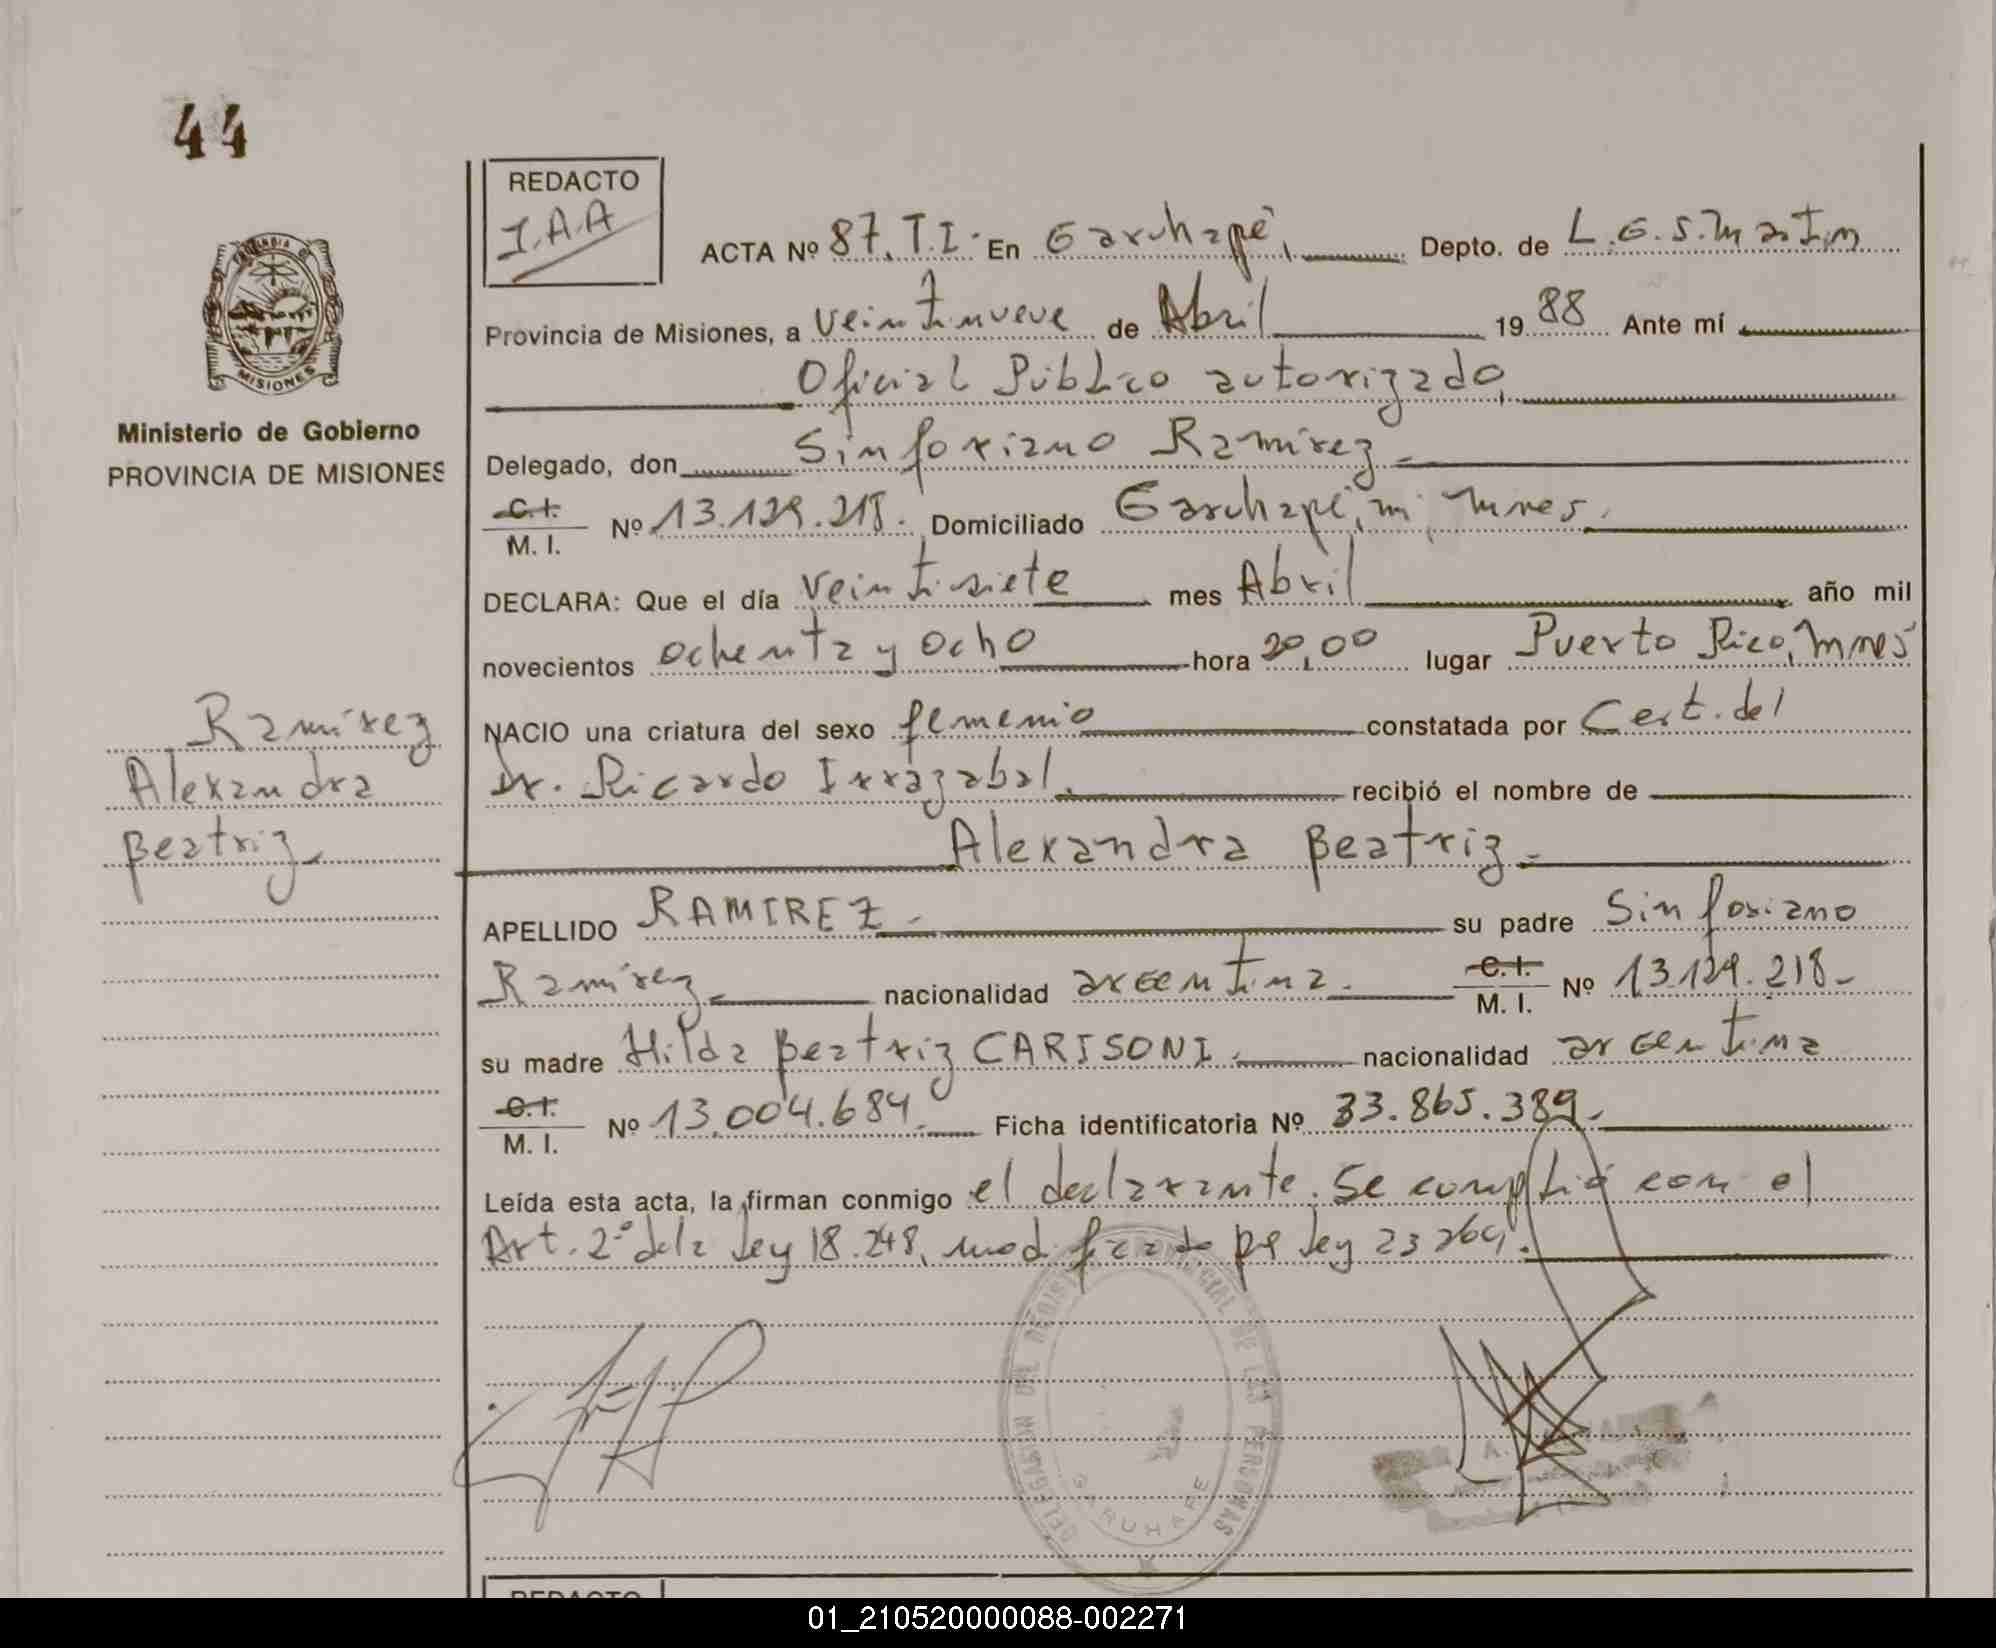 44
REDACTO
I.A.A
ACTA Nº 87. T.I. En Garuhapé, Depto. de L.G.S.Martin
Provincia de Misiones, a veintinueve de Abril 1988 Ante mí
Oficial Público autorizado,
Delegado, don Sinforiano Ramírez
C.I. / M. I. Nº 13.129.218. Domiciliado Garuhapé, mi, Mnes.
DECLARA: Que el día veintisiete mes Abril año mil
novecientos ochenta y ocho hora 20,00 lugar Puerto Rico, Mnes
NACIO una criatura del sexo femenio constatada por Cert. del
Dr. Ricardo Irrazabal. recibió el nombre de
Alexandra Beatriz
APELLIDO RAMIREZ su padre Sinforiano
Ramírez nacionalidad argentina. C.I. / M. I. Nº 13.129.218
su madre Hilda Beatriz CARISONI nacionalidad argentina
C.I. / M. I. Nº 13.004.684 Ficha identificatoria Nº 33.865.389
Leída esta acta, la firman conmigo el declarante. Se cumplió con el
Art. 2º de la Ley 18.248, modificado por Ley 23264.
MISIONES
Ministerio de Gobierno
PROVINCIA DE MISIONES
Ramírez
Alexandra
Beatriz
DE LAS PERSONAS
GARUHAPE
REDACTO
01_210520000088-002271